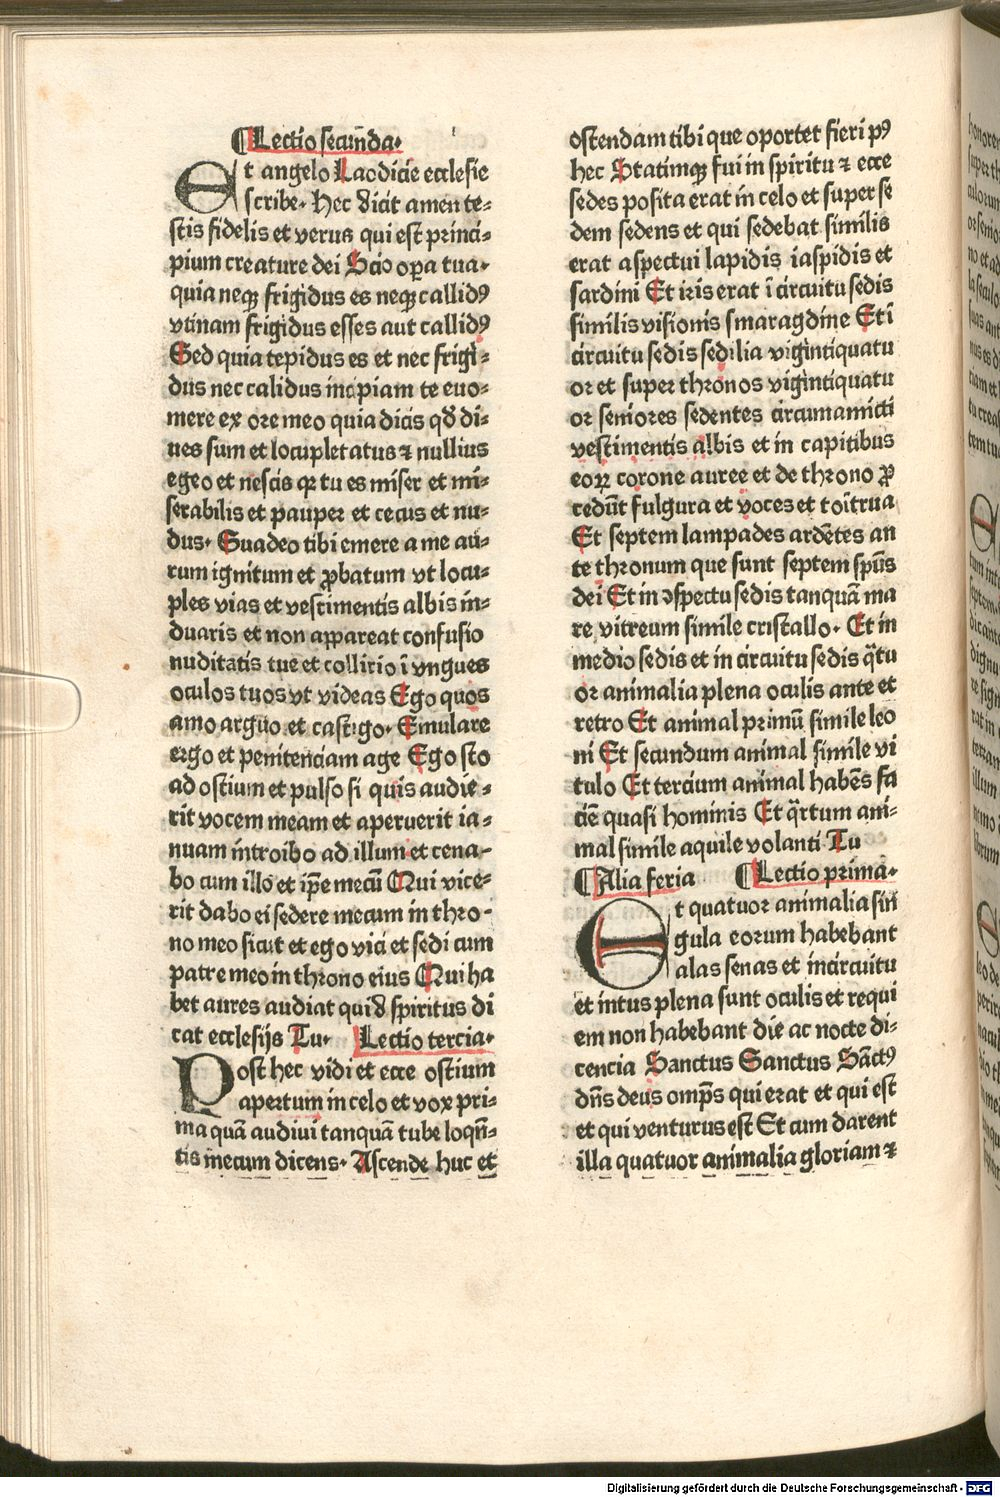 ¶Lectio secūnda.
Et angelo Laodicie ecclesie
scribe. Hec dicit amen te⸗
stis fidelis et verus qui est princi⸗
pium creature dei Scio oꝑa tua.
quia neqꝫ frigidus es neqꝫ callidꝰ
vtinam frigidus esses aut callidꝰ
Sed quia tepidus es et nec frigi⸗
dus nec calidus incipiam te euo⸗
mere ex ore meo quia dicis qd̄ di⸗
ues sum et locupletatus ⁊ nullius
egeo et nescis qꝛ tu es miser et mi⸗
serabilis et pauper et cecus et nu⸗
dus. Suadeo tibi emere a me au⸗
rum ignitum et ꝓbatum vt locu⸗
ples vias et vestimentis albis in⸗
duaris et non appareat confusio
nuditatis tue et collirio ī vngues
oculos tuos vt videas Ego quos
amo arguo et castigo. Emulare
ergo et penitenciam age Ego sto
ad ostium et pulso si quis audie⸗
rit vocem meam et aperuerit ia⸗
nuam introibo ad illum et cena⸗
bo cum illo et ip̄e mecū Qui vice⸗
rit dabo ei sedere mecum in thro⸗
no meo sicut et ego vici et sedi cum
patre meo in throno eius Qui ha
bet aures audiat quid spiritus di
cat ecclesijs Tu. Lectio tercia.
Post hec vidi et ecce ostium
apertum in celo et vox pri⸗
ma quā audiui tanquā tube loqūe⸗
tis mecum dicens. Ascende huc et
ostendam tibi que oportet fieri pꝰ
hec Statimqꝫ fui in spiritu ⁊ ecce
sedes posita erat in celo et super se
dem sedens et qui sedebat similis
erat aspectui lapidis iaspidis et
sardini Et iris erat ī circuitu sedis
similis visionis smaragdine Et ī
circuitu sedis sedilia vigintiquatu
or et super thronos vigintiquatu
or seniores sedentes circumamicti
vestimentis albis et in capitibus
eoꝝ corone auree et de throno ꝓ
cedūt fulgura et voces et toītrua
Et septem lampades ardētes an
te thronum que sunt septem spūs
dei Et in ↄspectu sedis tanquā ma
re vitreum simile cristallo. Et in
medio sedis et in circuitu sedis q̄tu
or animalia plena oculis ante et
retro Et animal primū simile leo
ni Et secundum animal simile vi
tulo Et tercium animal habēs fa
ciē quasi hominis Et q̄rtum ani⸗
mal simile aquile volanti Tu
¶Alia feria ¶Lectio prima.
Et quatuor animalia sin
gula eorum habebant
alas senas et incircuitu
et intus plena sunt oculis et requi
em non habebant die ac nocte di⸗
cencia Sanctus Sanctus Sāctꝰ
dn̄s deus omp̄s qui erat et qui est
et qui venturus est Et cum darent
illa quatuor animalia gloriam ⁊
Digitalisierung gefördert durch die Deutsche Forschungsgemeinschaft - DFG